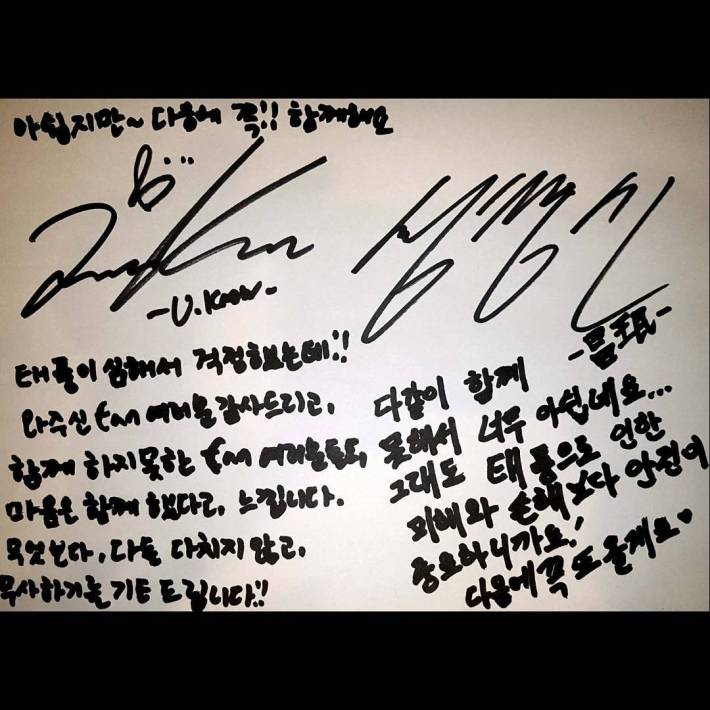 아쉽지만~ 다음에 꼭!! 함께해요
-U.Know-
태풍이 심해서 걱정했는데!!
와주신 fan 여러분 감사드리고,
함께 하지못한 fan 여러분들도,
마음은 함께 했다고, 느낍니다.
무엇보다, 다들 다치지 않고,
무사하기를 기도 드립니다!!
-昌珉-
다같이 함께
못해서 너무 아쉽네요...
그래도 태풍으로 인한
피해와 손해보다 안전이
중요하니까요!
다음에 꼭 또 올게요♥